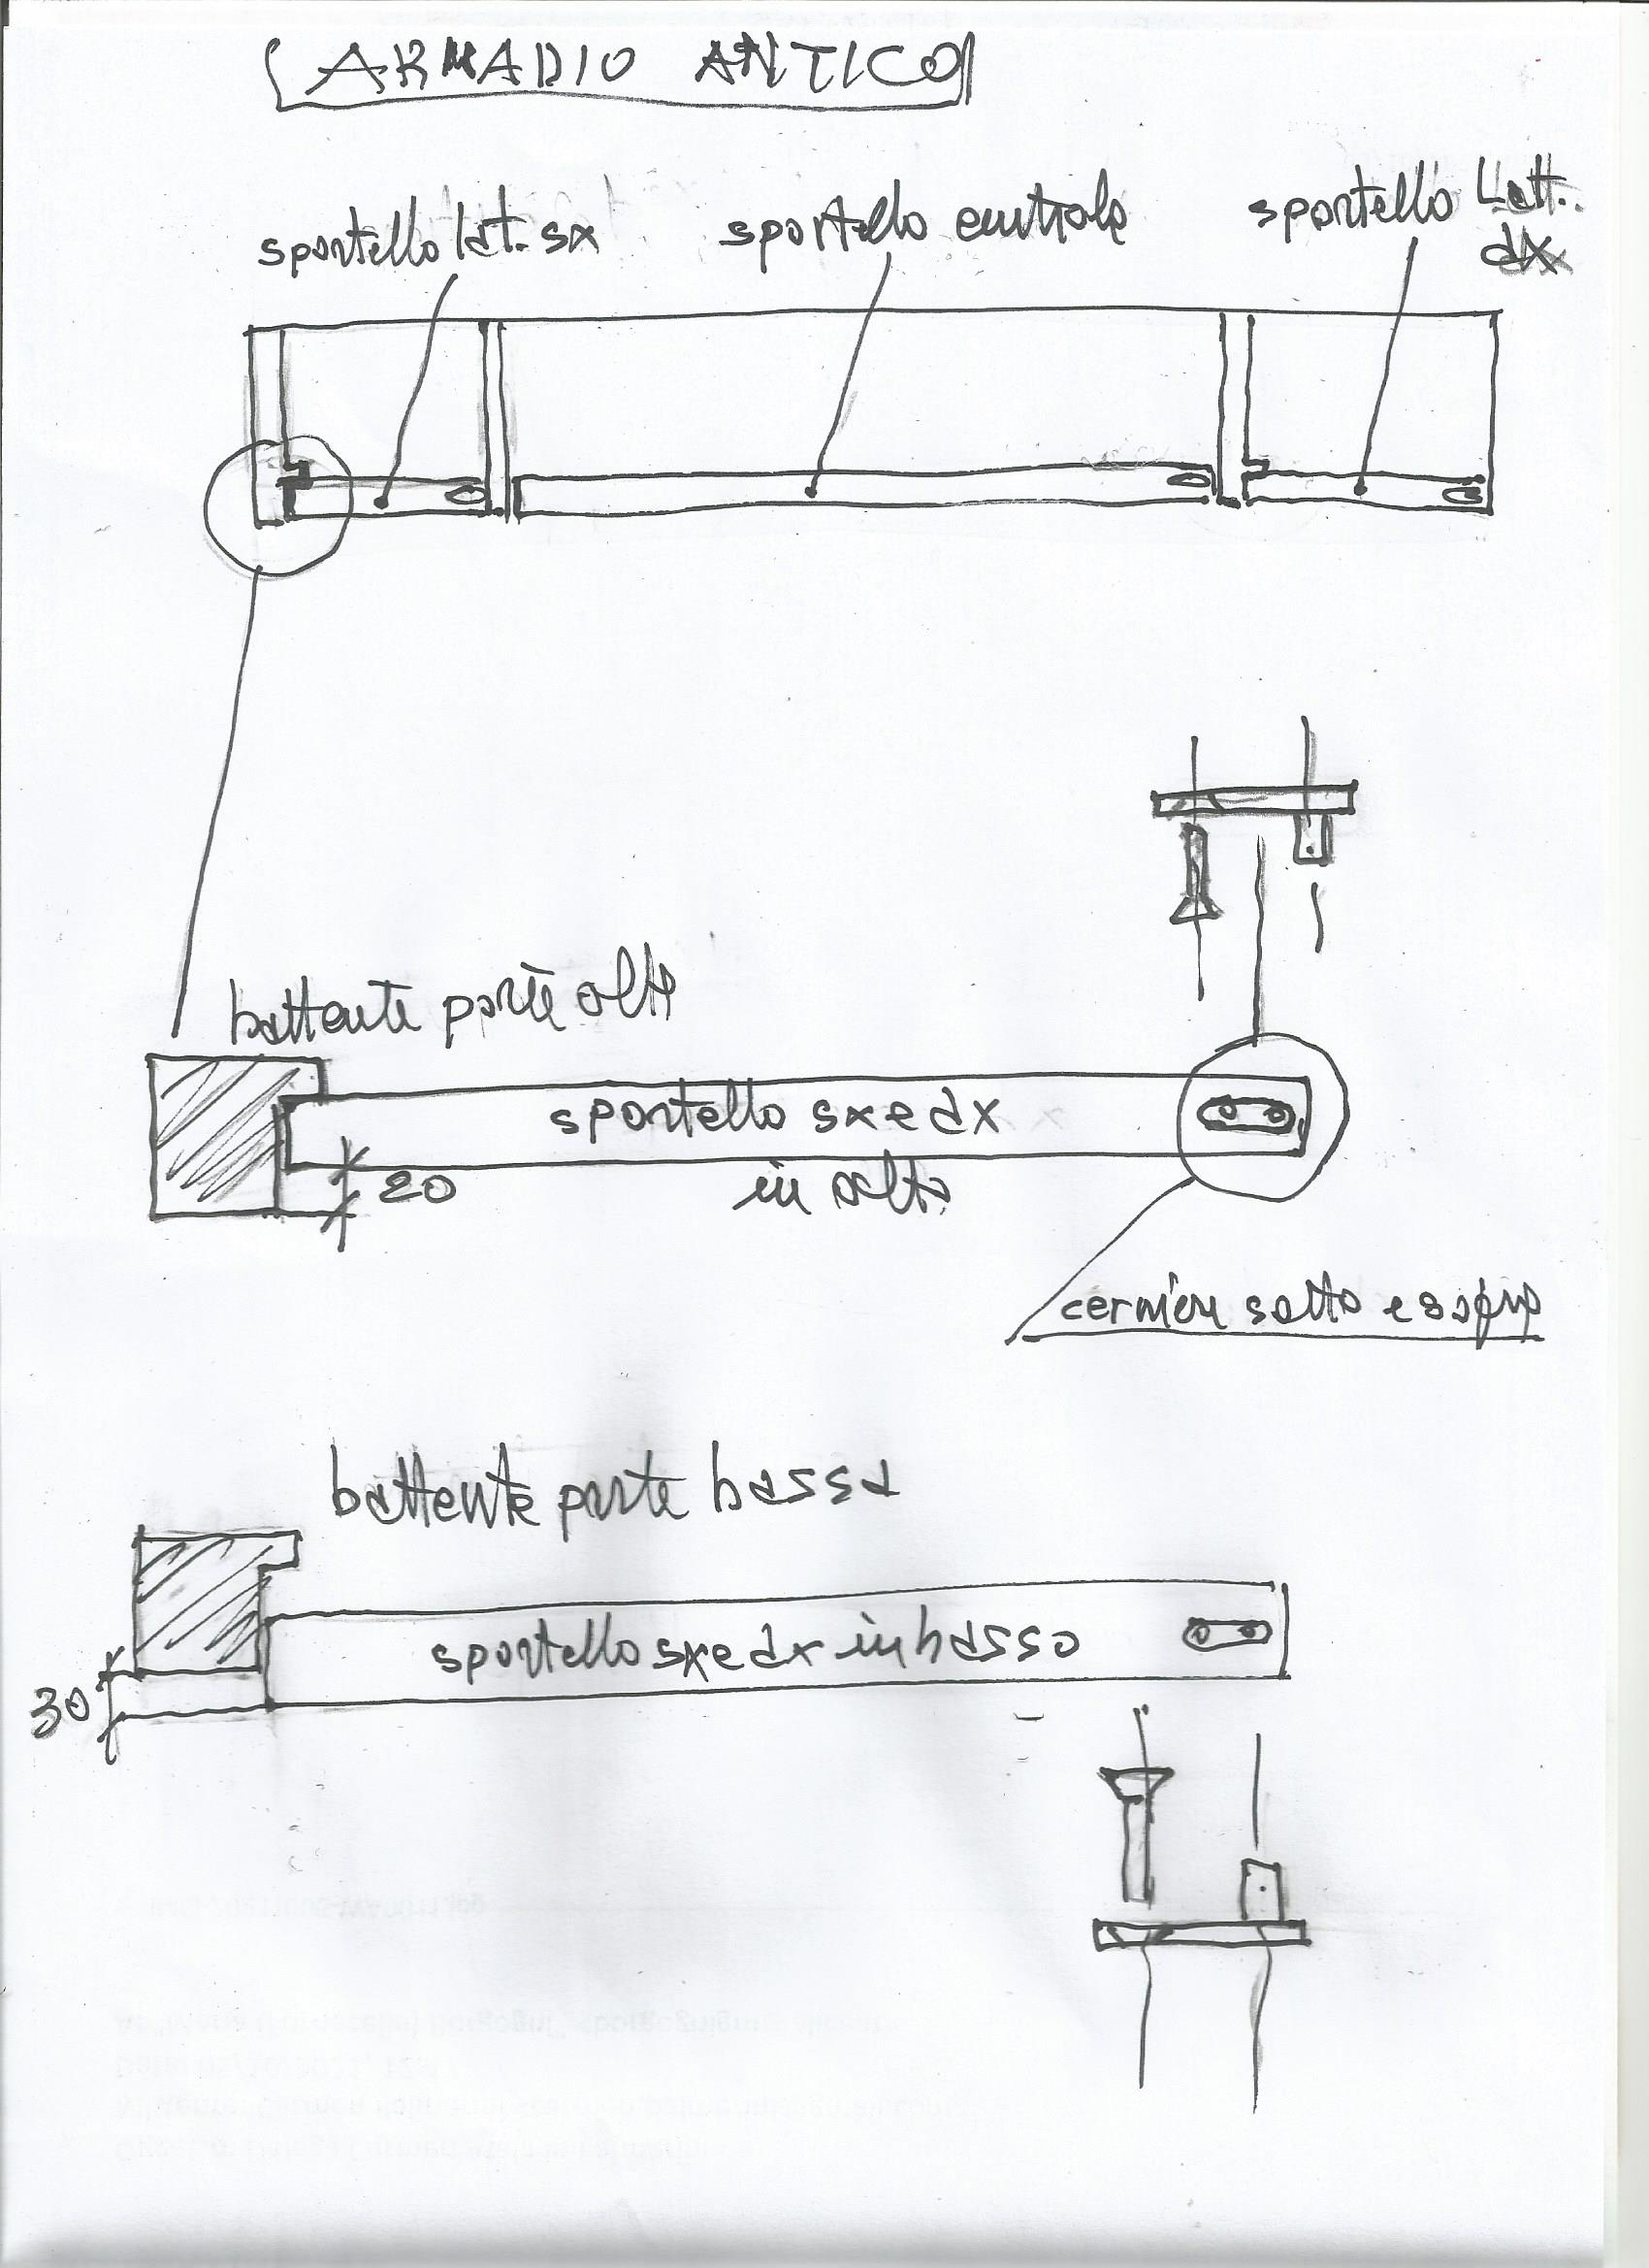 ARMADIO ANTICO
sportello lat. sx
sportello centrale
sportello Latt.
dx
battente parte alta
sportello sx e dx
20
in alto
cerniere sotto e sopra
battente parte bassa
sportello sx e dx in basso
30